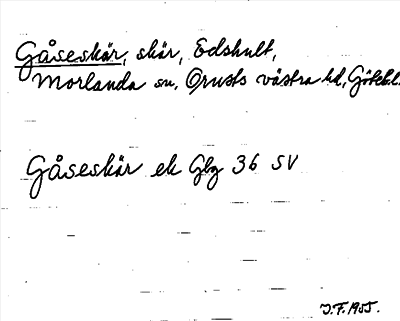 Gåseskär, skär, Edshult,
Morlanda sn, Orusts västra hd, Götebl.
Gåseskär ek Gbg 36 SV
J.F. 1955.